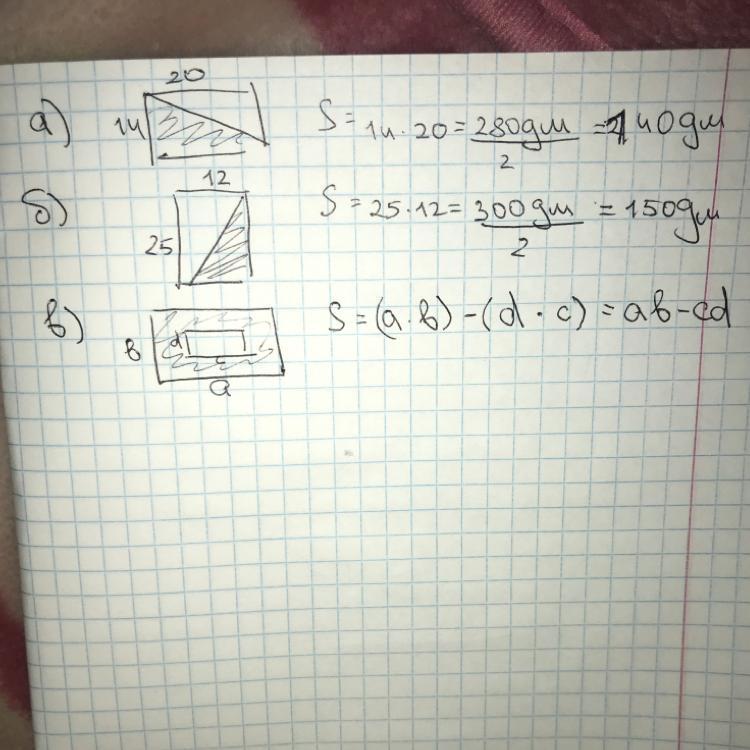 20
а) 14 S = 14 · 20 = 280дм / 2 = 140дм
12
б) 25 S = 25 · 12 = 300дм / 2 = 150дм
в) в d S = (a · в) - (d · c) = aв - cd
a